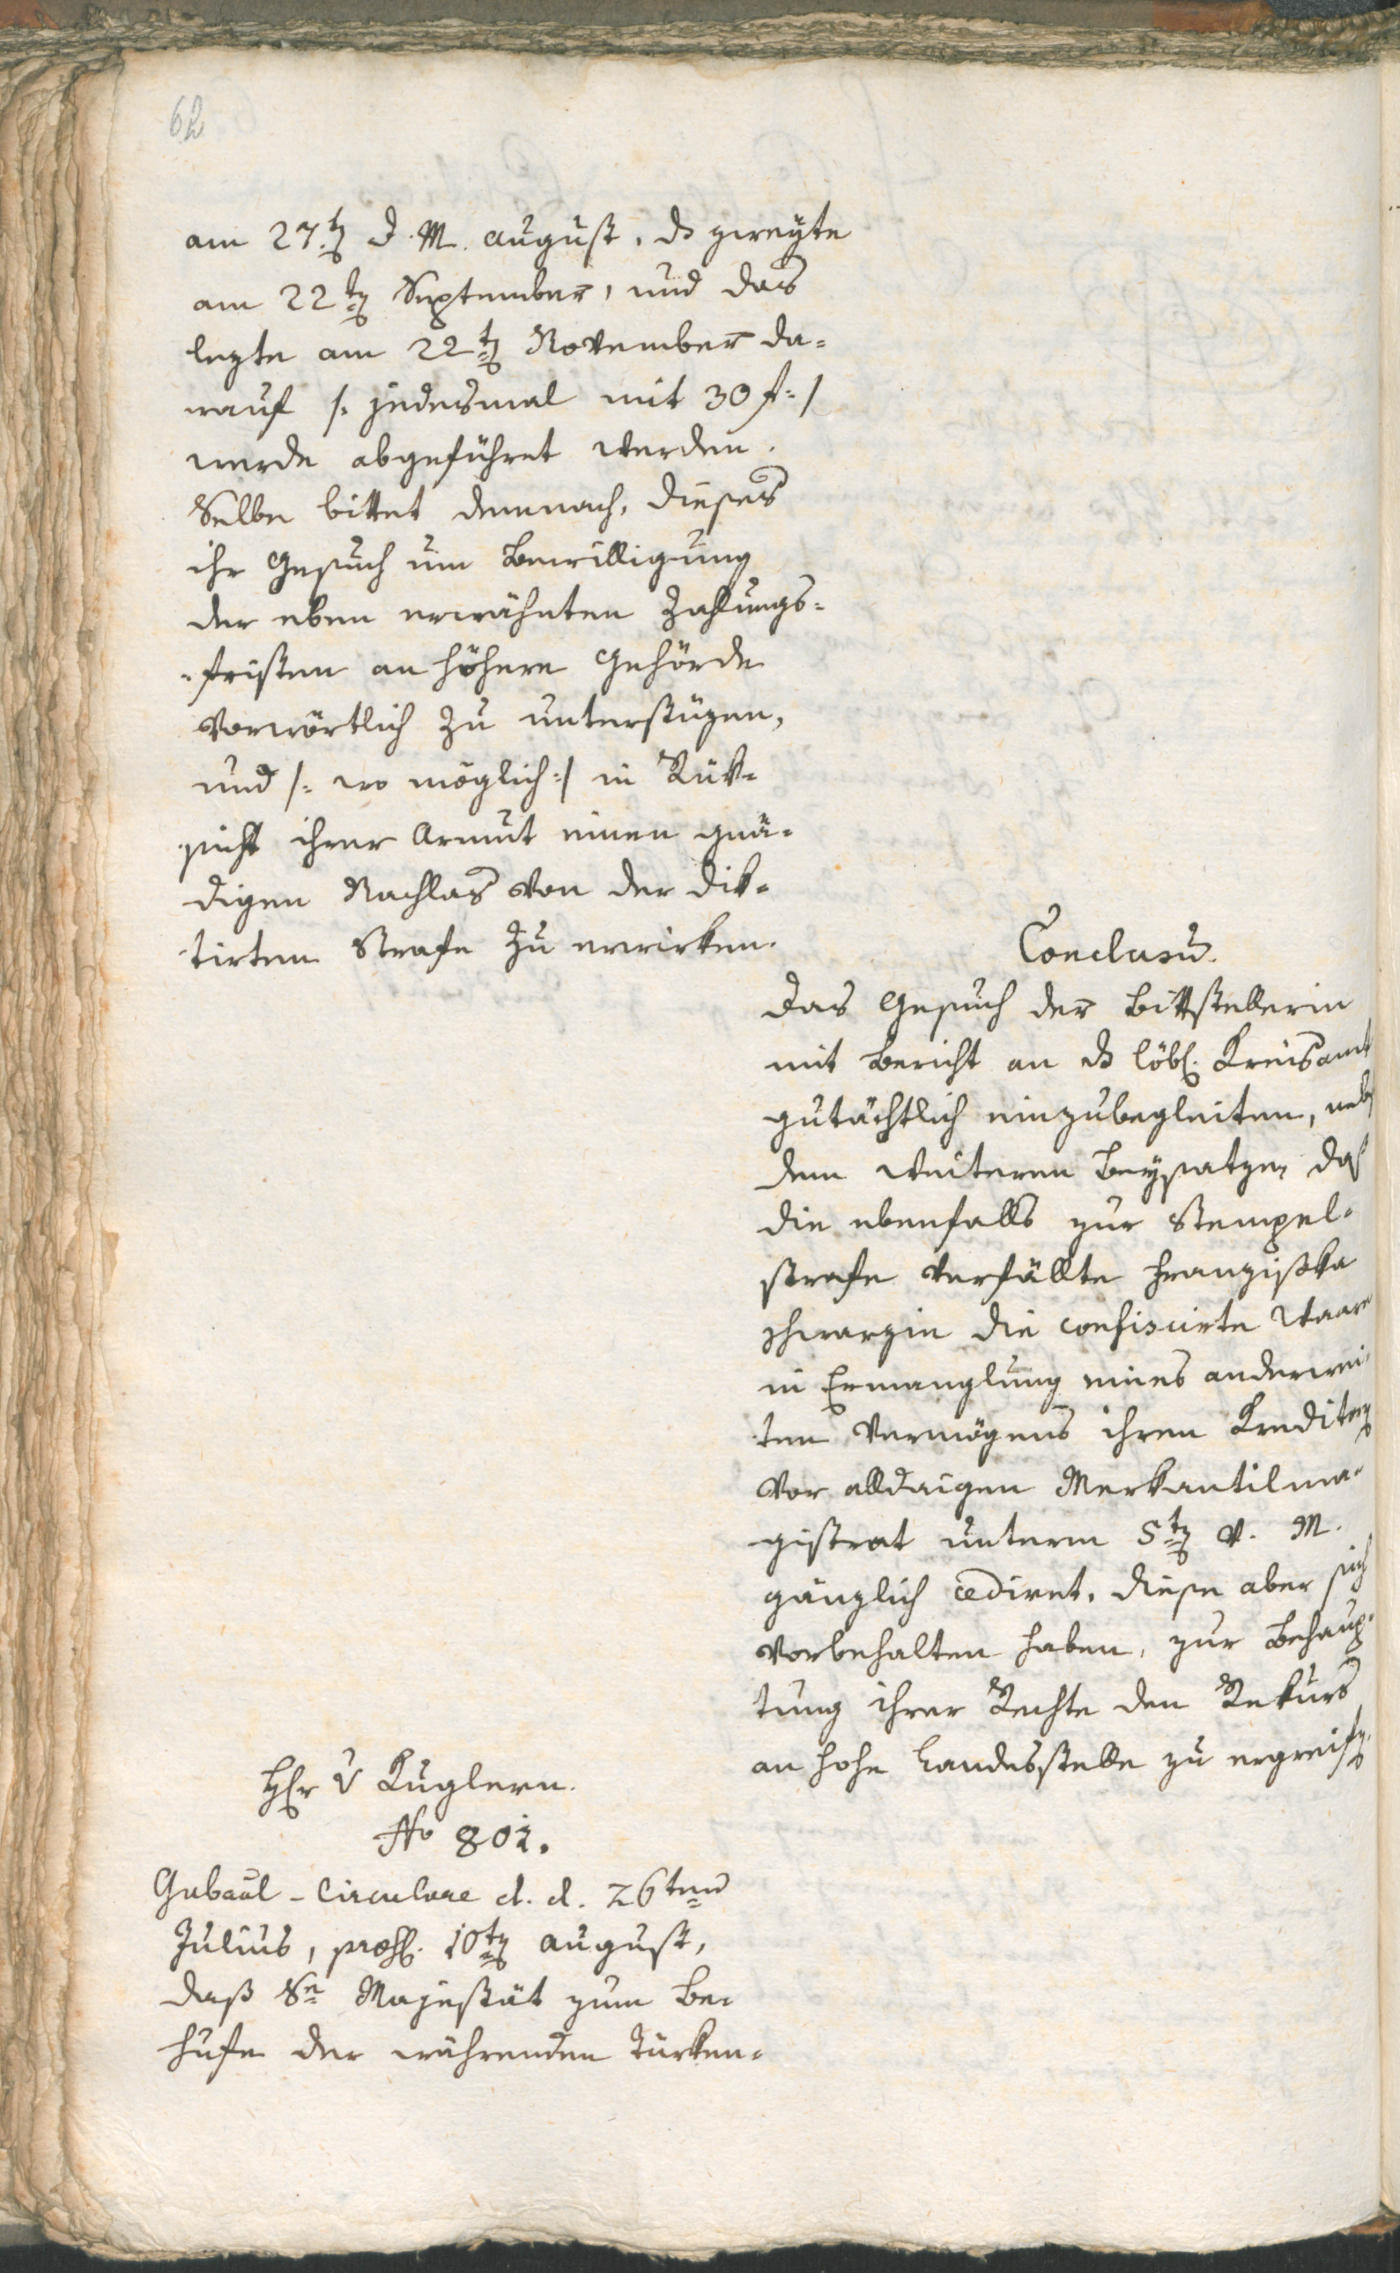 62
am 27t. d. M. August, ds zweÿte
am 22t September, und das
lezte am 22t November da=
rauf /: jedesmal mit 30 f: /
werde abgeführet werden.
Selbe bittet demnach, dieses
ihr Gesuch um Bewilligung
der eben erwähnten Zahlungs=
=fristen an höhere Gehörde
vorwörtlich zu unterstüzen,
und /: wo möglich :/ in Rük=
sicht ihrer Armut einen gnä=
digen Nachlas von der dik=
tirten Strafe zu erwirken.
Conclusū.
Das Gesuch der Bittstellerin
mit Bericht an ds löbl. Kreisamt
gutächtlich einzubegleiten, nebst
dem weiteren Beÿsatze, daß
die ebenfalls zur Stempel=
strafe verfällte Franziska
Schwarzin die confiscirte Waare
in Ermanglung eines anderwei=
ten Vermögens ihren Kreditorn
vor alldaigen Merkantilma=
gistrat unterm 5t v. M.
gänzlich cediret, diese aber sich
vorbehalten haben, zur Behaup=
tung ihrer Rechte den Rekurs
an hohe Landesstelle zu ergreifen.
Hr v Kuglern.
No 801.
Gubaal-Circulare d. d. 26ten
Julius, præs. 10t August,
daß Se Majestät zum Be=
hufe der währenden Türken=